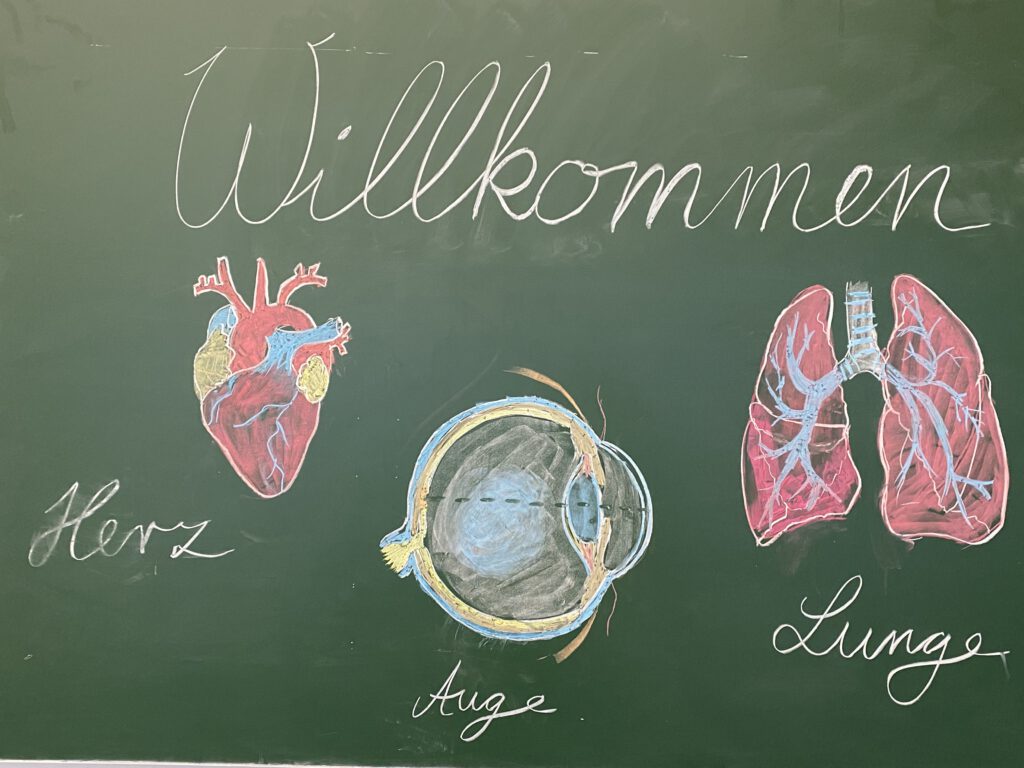 Willkommen
Herz
Auge
Lunge